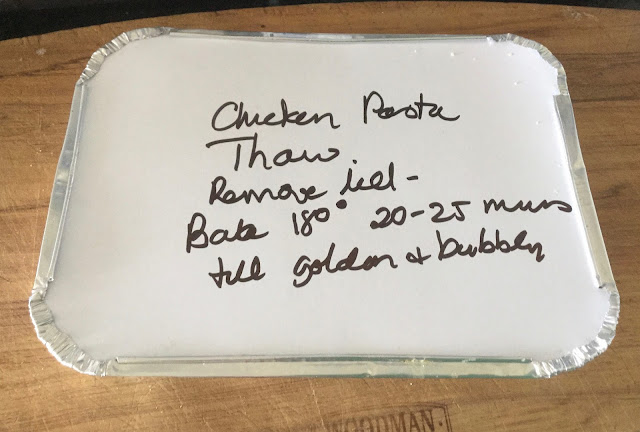 Chicken Pasta
Thaw.
Remove lid -
Bake 180° 20-25 mins
till golden & bubbly
WOODMAN